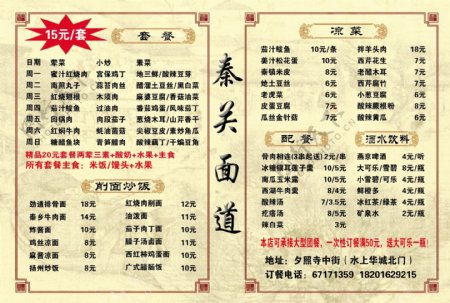 15元/套
套餐
日期 荤菜 小炒 素菜
周一 蜜汁红烧肉 宫保鸡丁 地三鲜/酸辣芽
周二 南煎丸子 蒜苔肉丝 醋溜土豆丝/黑白菜
周三 红烧翅根 木须肉 麻婆豆腐/香菇油菜
周四 三汁焖鱼 过油肉 香菇鸡蛋/风味茄丁
周五 回锅肉 肉段茄子 葱烧木耳/山芹香干
周六 红焖牛肉 鱼香肉丝 尖椒豆皮/素炒角瓜
周日 糖醋鱼块 酱爆鸡丁 酸辣笋片/干锅豆腐
精品20元套餐两荤三素+酸奶+水果+主食
所有套餐主食：米饭/馒头+水果
削面炒饭
劲道排骨面 18元
红烧肉削面 12元
秦乡牛肉面 14元
油泼面 11元
炸酱面 10元
茄子肉丁面 10元
鸡丝凉面 8元
臊子汤卤面 11元
麻酱面 8元
西红柿鸡蛋面 10元
扬州炒饭 8元
广式腊肠饭 10元
秦关面道
凉菜
茄汁鲅鱼 10元/条
拌羊头肉 18元
姜汁松花蛋 10元
西芹花生 7元
秦镇米皮 8元
老醋木耳 7元
地土豆丝 6元
西芹腐竹 7元
老虎菜 6元
小葱豆腐 6元
皮蛋豆腐 7元
酸辣蕨根粉 8元
瓜丝金针菇 7元
酸辣黄瓜条 6元
配餐
骨肉相连(3串起送) 2元/串
冰糖银耳莲子羹 5元/碗
南瓜玉米露 5元/碗
西湖牛肉羹 4元/碗
酸辣汤 7元/3.5元
疙瘩汤 8元/5元
辣白菜 3元
酒水饮料
燕京啤酒 4元/听
大可乐/雪碧 8元/瓶
小可乐/雪碧 3元/听
鲜橙多 4元/瓶
冰红茶/绿茶 4元/瓶
矿泉水 2元/瓶
本店可承接大型团餐，一次性订餐满50元，送大可乐一瓶！
地址：夕照寺中街（水上华城北门）
订餐电话：67171359 18201629215